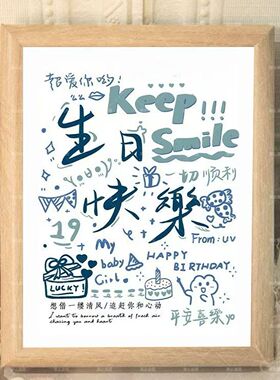 超爱你哟!
Keep!!!
Smile
生日
一切顺利
快樂
19
My
baby
Girl
From: UV
HAPPY
BIRTHDAY
LUCKY!
想借一缕清风/追赶你和心动
I want to borrow a breath of fresh air
chasing you and heart
平安喜樂yo